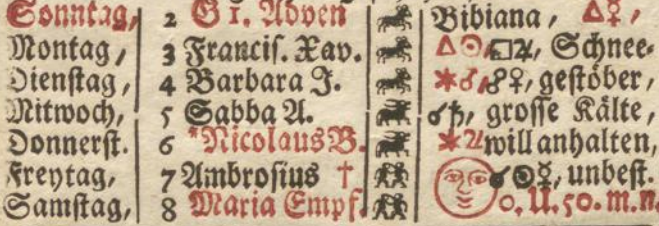 Sonntag, 2 G 1. Adven Bibiana, △♀,
Montag, 3 Francis. Xav. △☉, □♃, Schnee-
Dienstag, 4 Barbara J. ✶♂, ☍♀, gestöber,
Mitwoch, 5 Sabba A. ☌♄, grosse Kälte,
Donnerst. 6 *Nicolaus B. ✶♃ will anhalten,
Freytag, 7 Ambrosius † ☌☉☿, unbest.
Samstag, 8 Maria Empf. 0. U. 50. m. n.